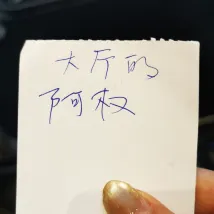 大厅的
阿权